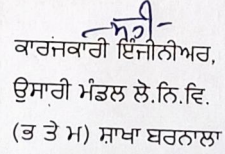 -ਸਹੀ-
ਕਾਰਜਕਾਰੀ ਇੰਜੀਨੀਅਰ,
ਉਸਾਰੀ ਮੰਡਲ ਲੋ.ਨਿ.ਵਿ.
(ਭ ਤੇ ਮ) ਸ਼ਾਖਾ ਬਰਨਾਲਾ